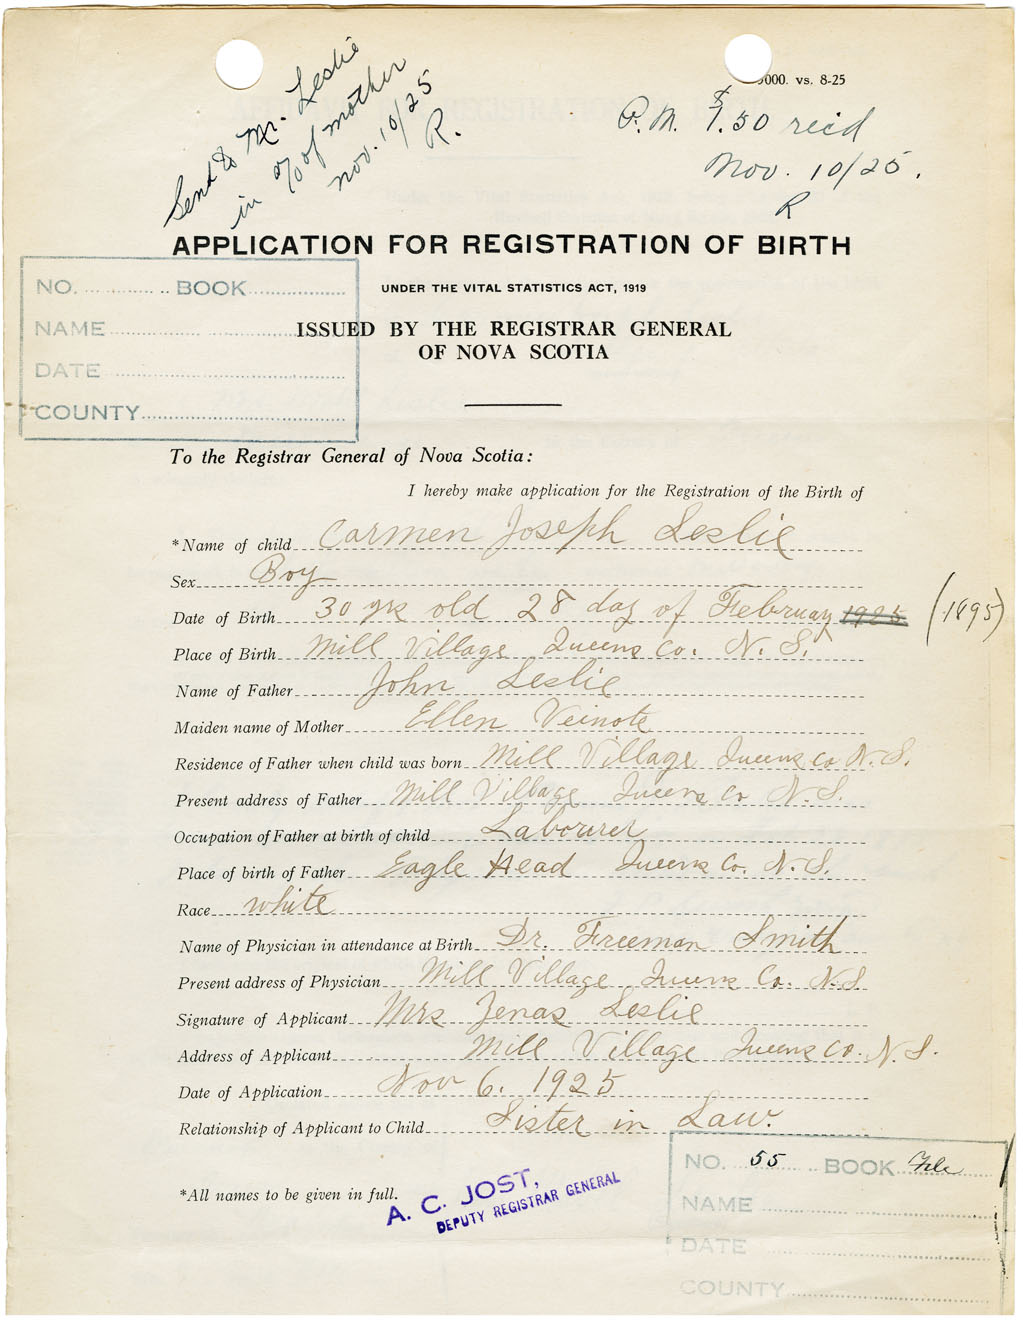 Send to Mr. Leslie
in % of mother
Nov. 10/25
R.
000. vs. 8-25
P.M. $1.50 rec'd
Nov. 10/25.
R
APPLICATION FOR REGISTRATION OF BIRTH
UNDER THE VITAL STATISTICS ACT, 1919
ISSUED BY THE REGISTRAR GENERAL
OF NOVA SCOTIA
NO. BOOK
NAME
DATE
COUNTY
To the Registrar General of Nova Scotia:
I hereby make application for the Registration of the Birth of
*Name of child Carmen Joseph Leslie
Sex Boy
Date of Birth 30 yrs old 28 day of February 1925 (1895)
Place of Birth Mill Village Queens Co. N.S.
Name of Father John Leslie
Maiden name of Mother Ellen Veinote
Residence of Father when child was born Mill Village Queens Co N.S.
Present address of Father Mill Village Queens Co N.S.
Occupation of Father at birth of child Labourer
Place of birth of Father Eagle Head Queens Co. N.S.
Race white
Name of Physician in attendance at Birth Dr. Freeman Smith
Present address of Physician Mill Village Queens Co. N.S
Signature of Applicant Mrs Zenas Leslie
Address of Applicant Mill Village Queens Co. N.S.
Date of Application Nov 6. 1925
Relationship of Applicant to Child Sister in Law.
*All names to be given in full.
A. C. JOST,
DEPUTY REGISTRAR GENERAL
NO. 55 BOOK File
NAME
DATE
COUNTY